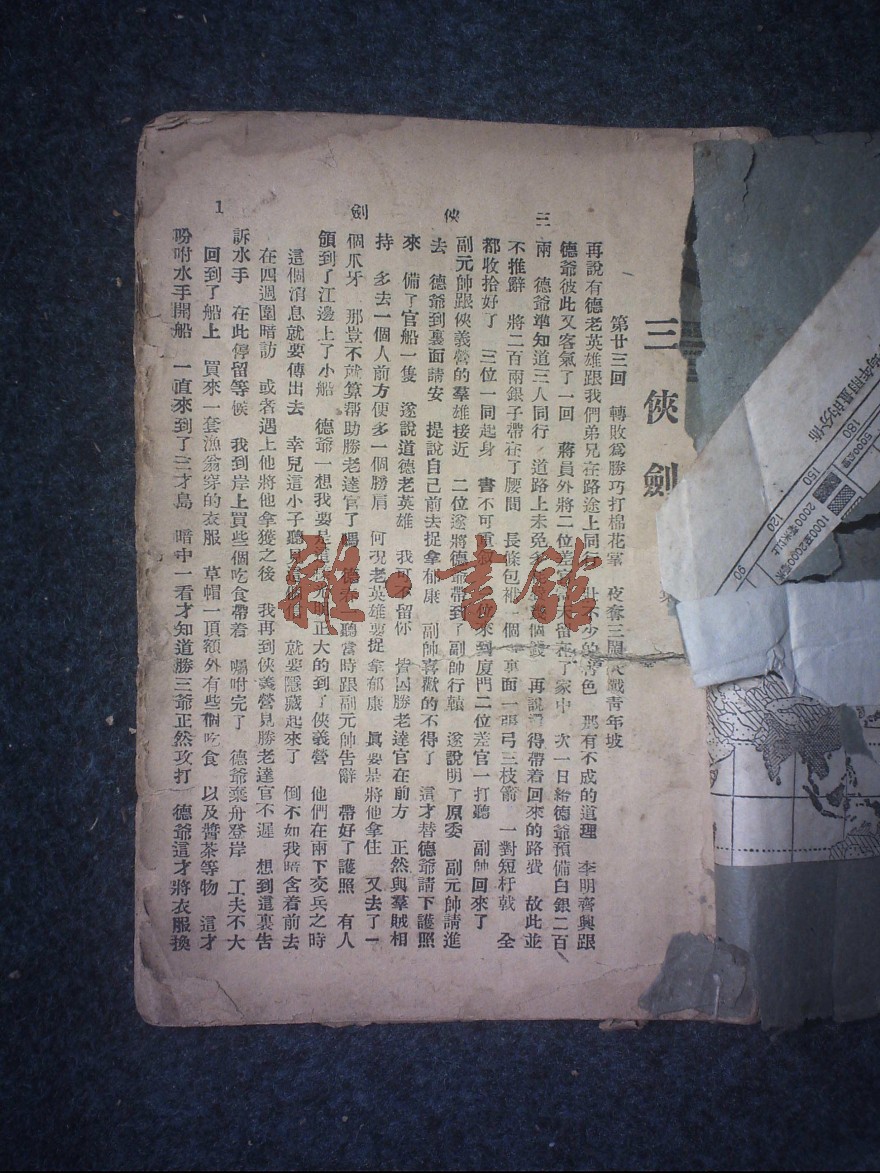 三俠劍
第廿三回 轉敗爲勝巧打棉花塞 夜奪三關大戰青年坡
再說有德老英雄跟我們弟兄在路途上同行 不少的 色 那有不成的道理 李明齊興跟
德爺彼此又客氣了一回 蔣員外將二位差 留在了家中 次一日給德爺預備白銀二百
兩 德爺準知道三人同行 道路上未免 個 再說還得帶着回來的路費 故此並
不推辭 將二百兩銀子帶在了腰間 長條包袱一個 裏面一張弓三枝箭 一對短杆戟 全
都收拾好了 三位一同起身 書不可重 來到厦門二位差官一打聽 副帥回來了
副元帥跟俠義營的羣雄接近 二位遂將德爺帶到了副帥行轅 遂說明了原委 副元帥請進
去 德爺到裏面請安 提說自己前去捉拿郁康 副帥喜歡的不得了 這才替德爺請下護照
來 備了官船一隻 遂說道德老英雄 我可不留你 皆因勝老達官在前方 正然與羣賊相
持 多去一個人前方便多一個膀肩 何況老英雄要捉拿郁康 眞要是將他拿住 又去了一
個爪牙 那豈不就算帮助勝老達官了嗎 德爺 聽當時跟副元帥告辭 帶好了護照 有人
領到了江邊上了小船 德爺一想我要是 明正大的到了俠義營 他們在兩下交兵之時
這個消息就要傳出去 幸兒這小子聽見 就要隱藏起來了 倒不如我暗含着前去
在四週圍暗訪 或者遇上他將他拿獲之後 我再到俠義營見勝老達官不遲 想到這裏告
訴水手 在此停留等候 我到岸上買些個吃食帶着 囑咐完了 德爺棄舟登岸 工夫不大
回到了船上 買來一套漁翁穿的衣服 草帽一頂額外有些個吃食 以及醬茶等物 這才
吩咐水手開船 一直來到了三才島 暗中一看才知道勝三爺正然攻打 德爺這才將衣服換
三俠劍
1
雜·書館
每年雨量的分佈
180
150
120
90